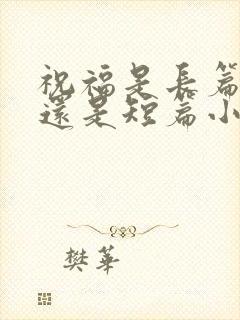 祝福是長篇
還是短篇小
樊華